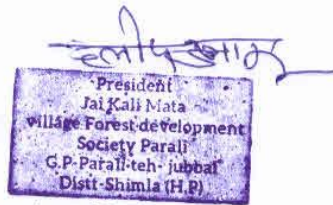 President
Jai Kali Mata
village Forest development
Society Parali
G.P-Parali-teh- jubbal
Distt-Shimla (H.P)